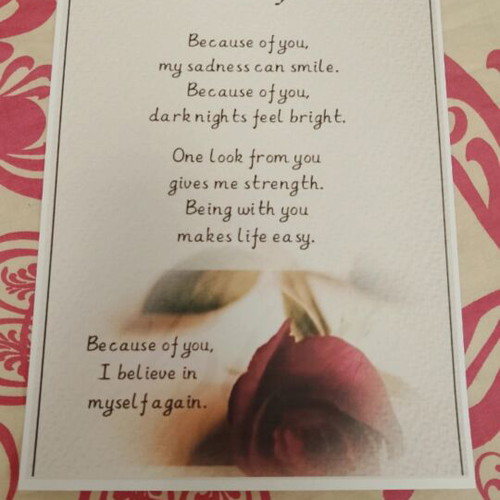 Because of you,
my sadness can smile.
Because of you,
dark nights feel bright.
One look from you
gives me strength.
Being with you
makes life easy.
Because of you,
I believe in
myself again.